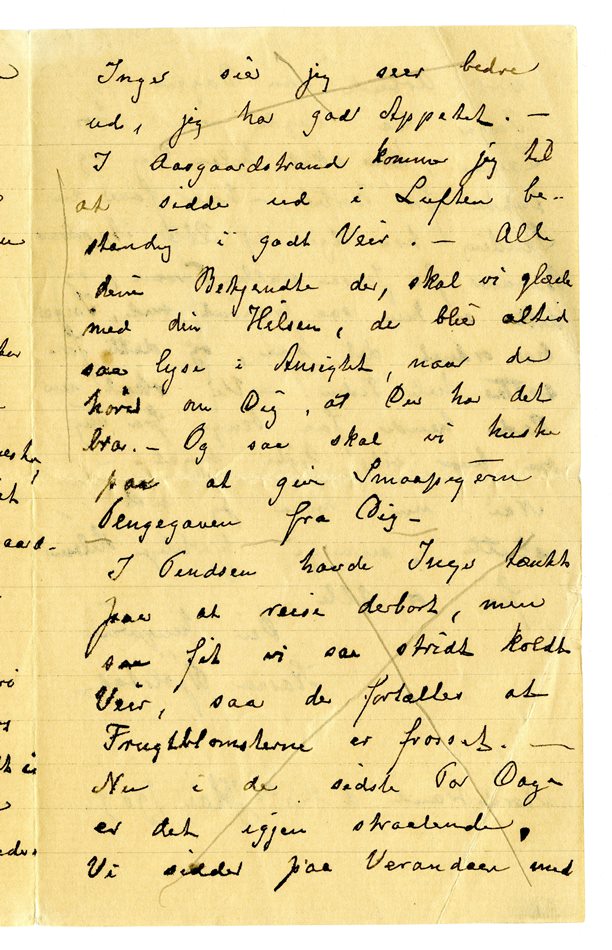 Inger sier jeg seer bedre
ud, jeg har god Appetit. —
I Aasgaardstrand kommer jeg til
at sidde ud i Luften be-
standig i godt Veir. — Alle
dine Bekjendte der, skal vi glæde
med din Hilsen, de blir altid
saa lyse i Ansigt, naar de
hører om Dig, at Du har det
bra. — Og saa skal vi huske
paa at give Smaapigerne
Pengegaven fra Dig —
I Pendsen havde Inger tænkt
paa at reise derbort, men
saa fik vi saa stridt koldt
Veir, saa de fortælles at
Frugtblomsterne er frosset. —
Nu i de sidste Par Dage
er det igjen straalende,
Vi sidder paa Verandaen med